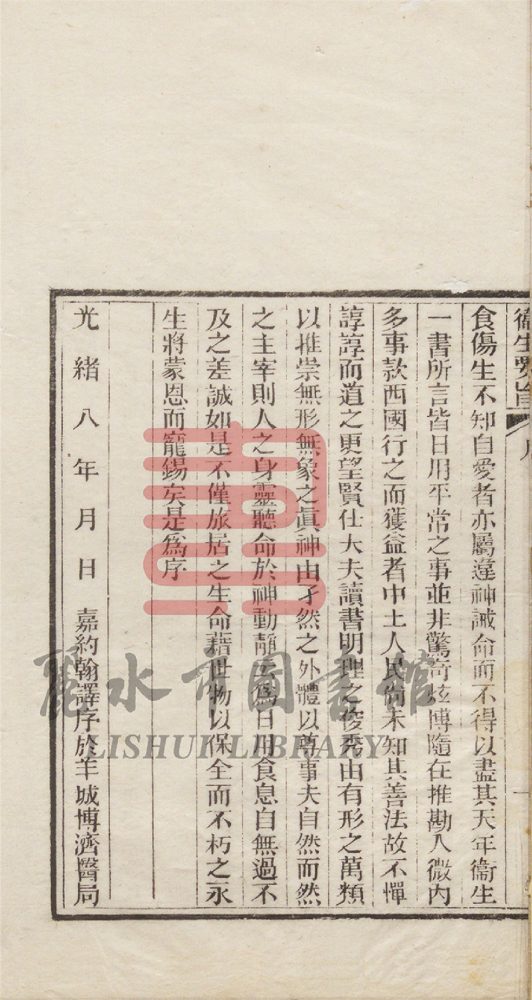 衞生要旨 序
食傷生不知自愛者亦屬違神誡命而不得以盡其天年衞生
一書所言皆日用平常之事並非驚奇炫博隨在推勘入微內
多事款西國行之而獲益者中土人民尙未知其善法故不憚
諄諄而道之更望賢仕大夫讀書明理之俊秀由有形之萬類
以推崇無形無象之眞神由孑然之外體以尊事夫自然而然
之主宰則人之身靈聽命於神動靜云爲日用食息自無過不
及之差誠如是不僅旅居之生命藉世物以保全而不朽之永
生將蒙恩而寵錫矣是爲序
光緒八年月日 嘉約翰譯序於羊城博濟醫局
麗水市圖書館
LISHUI LIBRARY